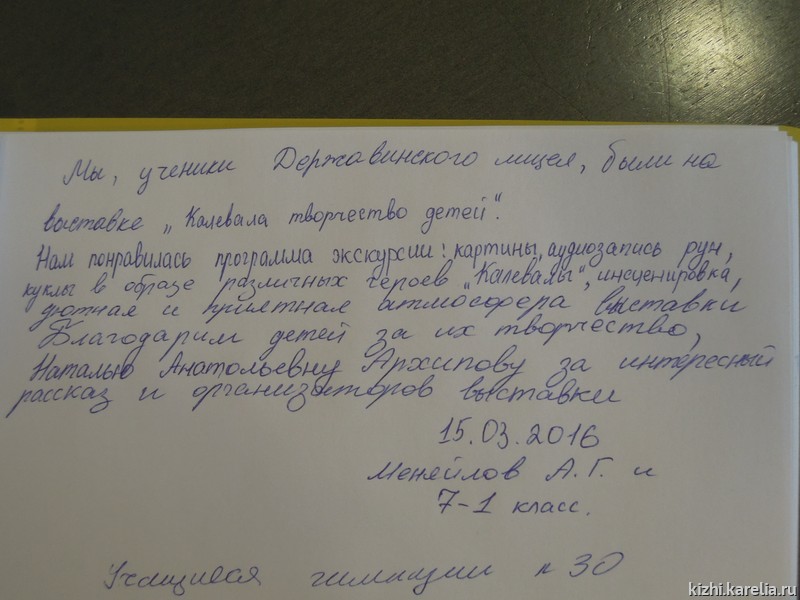 Мы, ученики Державинского лицея, были на
выставке „Калевала творчество детей".
Нам понравилась программа экскурсии: картины, аудиозапись рун,
куклы в образе различных героев „Калевалы", инсценировка,
уютная и приятная атмосфера выставки
Благодарим детей за их творчество,
Наталью Анатольевну Архипову за интересный
рассказ и организаторов выставки
15.03.2016
Меняйлов А.Г. и
7-1 класс.
Учащиеся гимназии № 30
kizhi.karelia.ru